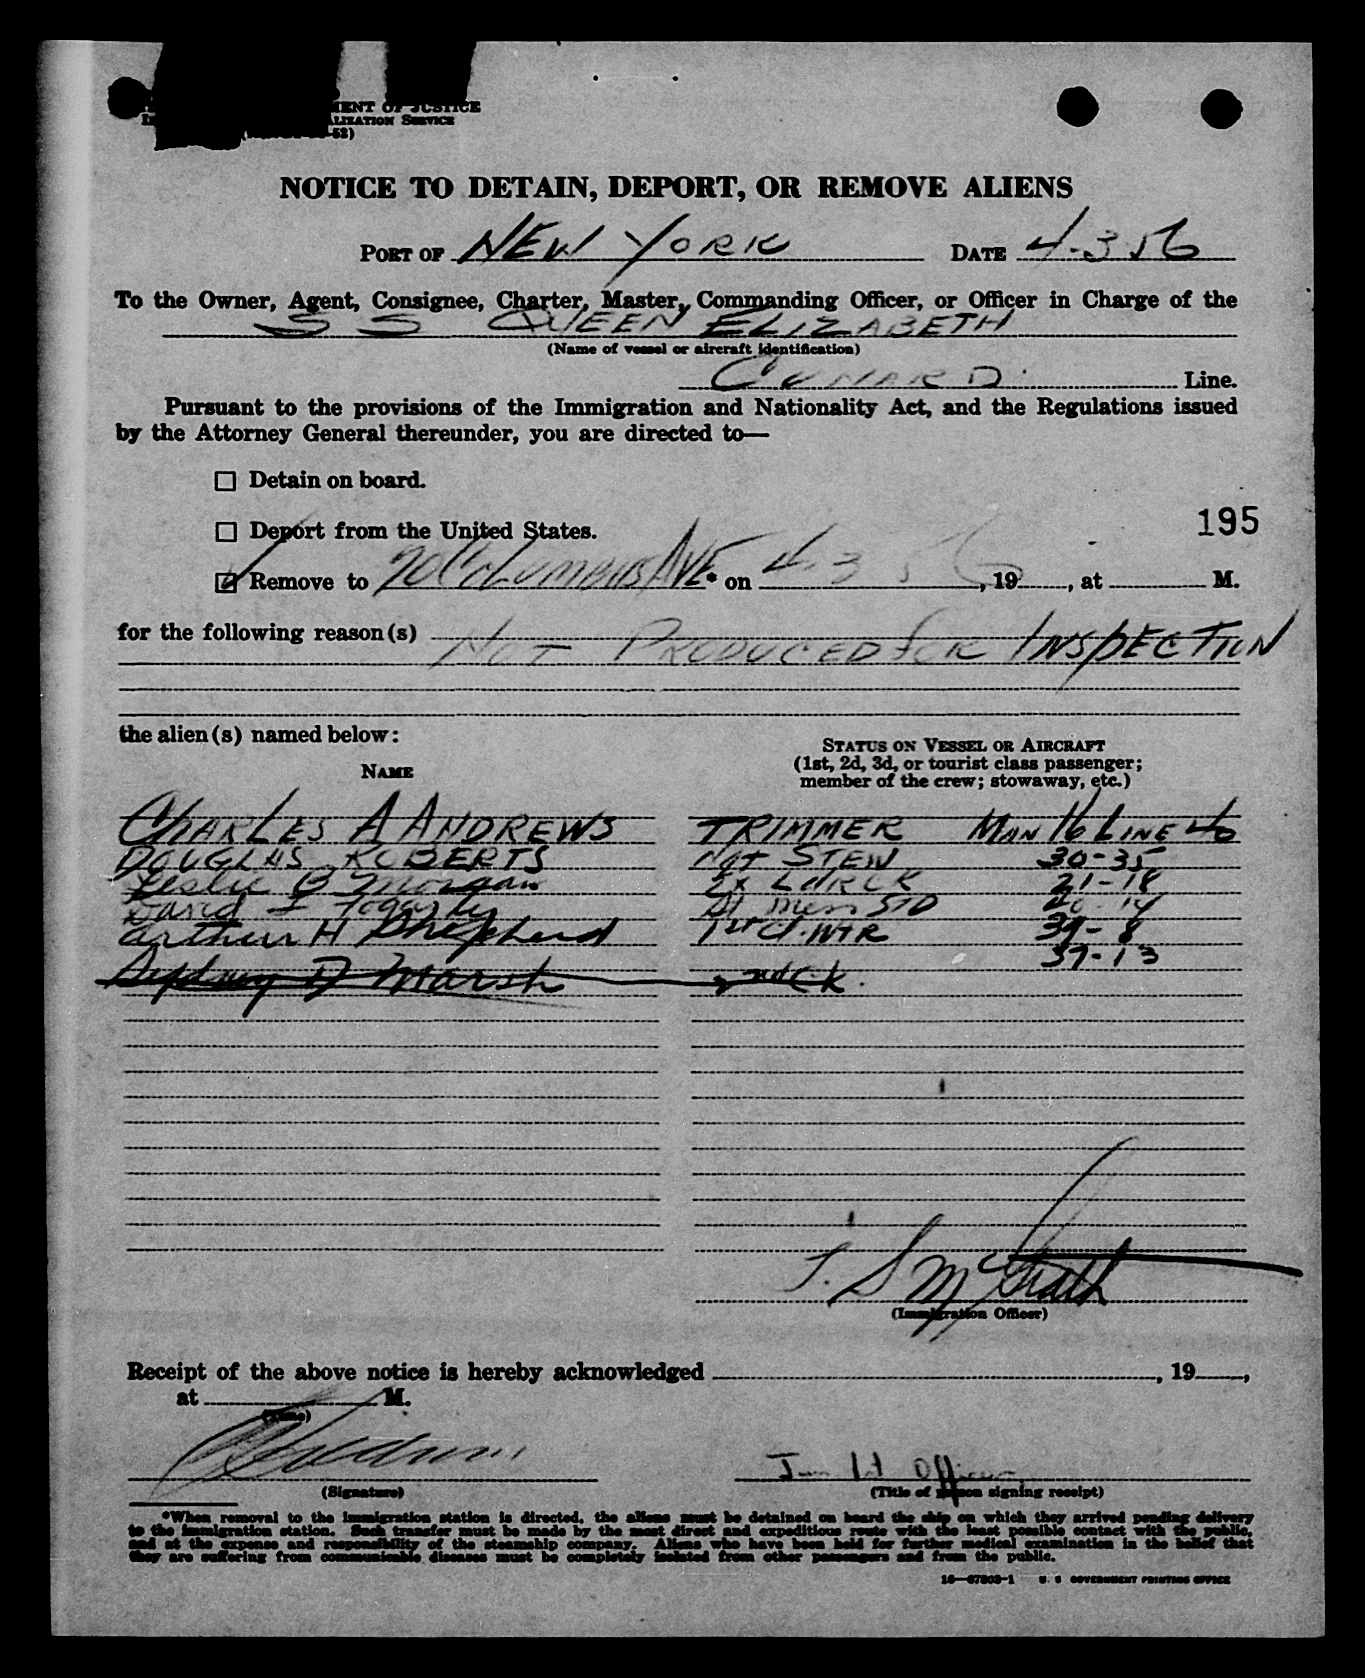 MENT OF JUSTICE
ALIZATION SERVICE
-52)
NOTICE TO DETAIN, DEPORT, OR REMOVE ALIENS
PORT OF NEW YORK DATE 4-3 56
To the Owner, Agent, Consignee, Charter, Master, Commanding Officer, or Officer in Charge of the
S S QUEEN ELIZABETH
(Name of vessel or aircraft identification)
CUNARD Line.
Pursuant to the provisions of the Immigration and Nationality Act, and the Regulations issued
by the Attorney General thereunder, you are directed to—
Detain on board.
Deport from the United States.
195
Remove to 70 COLUMBUS AVE * on 4-3 56, 19, at M.
for the following reason(s)
NOT PRODUCED FOR INSPECTION
the alien(s) named below:
STATUS ON VESSEL OR AIRCRAFT
NAME (1st, 2d, 3d, or tourist class passenger;
member of the crew; stowaway, etc.)
CHARLES A ANDREWS TRIMMER MAN 16 LINE 40
DOUGLAS ROBERTS STEW 30-35
Leslie B Morgan 21-18
David I Fogarty STD
Arthur H Shepherd 1st Cl. WTR 39-8
37-13
Sydney D Marsh 2nd Ck.
J. S McGrath
(Immigration Officer)
Receipt of the above notice is hereby acknowledged , 19 ,
at M.
(Time)
Officer
(Signature) (Title of person signing receipt)
*When removal to the immigration station is directed, the aliens must be detained on board the ship on which they arrived pending delivery
to the immigration station. Such transfer must be made by the most direct and expeditious route with the least possible contact with the public,
and at the expense and responsibility of the steamship company. Aliens who have been held for further medical examination in the belief that
they are suffering from communicable diseases must be completely isolated from other passengers and from the public.
16—67303-1 U. S GOVERNMENT PRINTING OFFICE